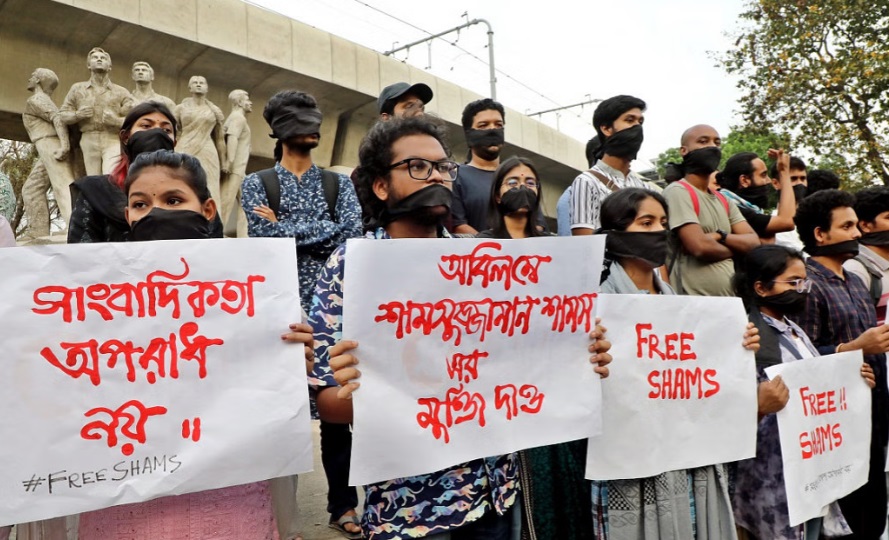 সাংবাদিকতা
অপরাধ
নয় ॥
#FREESHAMS
অবিলম্বে
শামসুজ্জামান শামস
এর
মুক্তি দাও
FREE
SHAMS
FREE !!
SHAMS